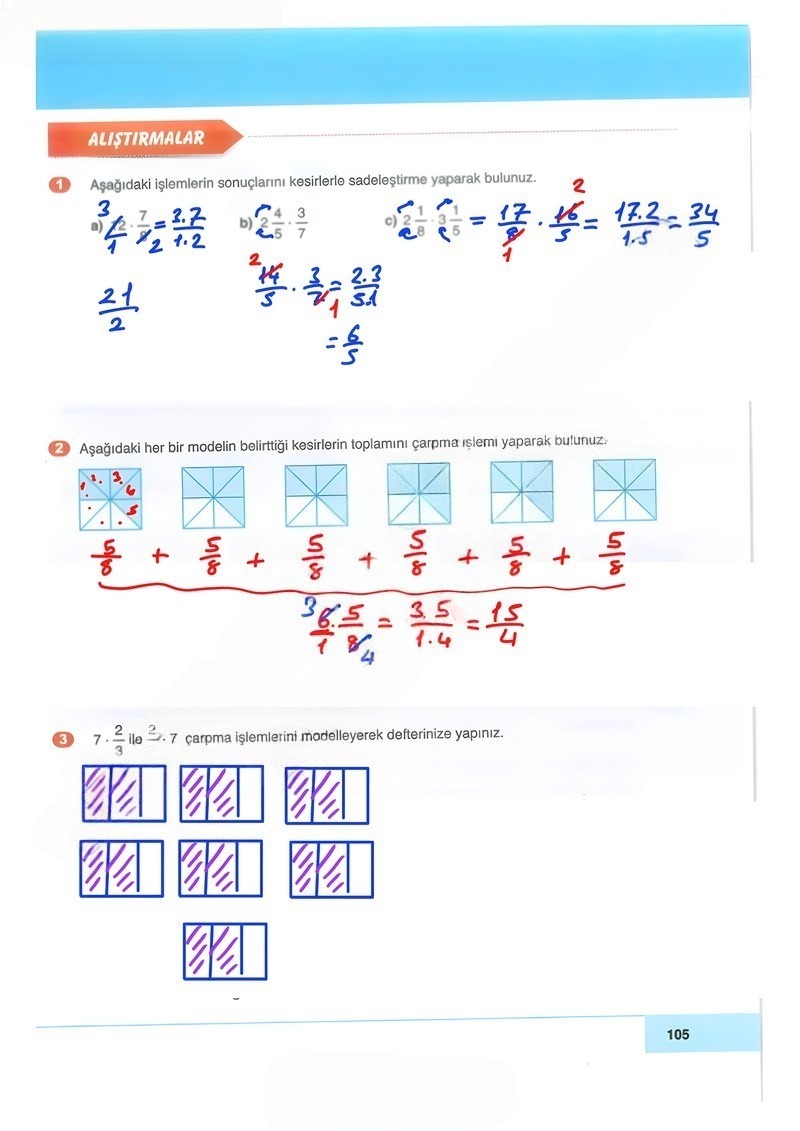 ALIŞTIRMALAR
1 Aşağıdaki işlemlerin sonuçlarını kesirlerle sadeleştirme yaparak bulunuz.
a) 12 · 7/8 = 3.7/1.2
3 1 2
21/2
b) 2 4/5 · 3/7
2 14/5 · 3/7 1 = 2.3/5.1
= 6/5
c) 2 1/8 · 3 1/5 = 17/8 · 16/5 = 17.2/1.5 = 34/5
2 1
2 Aşağıdaki her bir modelin belirttiği kesirlerin toplamını çarpma işlemi yaparak bulunuz.
5/8 + 5/8 + 5/8 + 5/8 + 5/8 + 5/8
3 6/1 · 5/8 4 = 3.5/1.4 = 15/4
3 7 · 2/3 ile 2 · 7 çarpma işlemlerini modelleyerek defterinize yapınız.
105